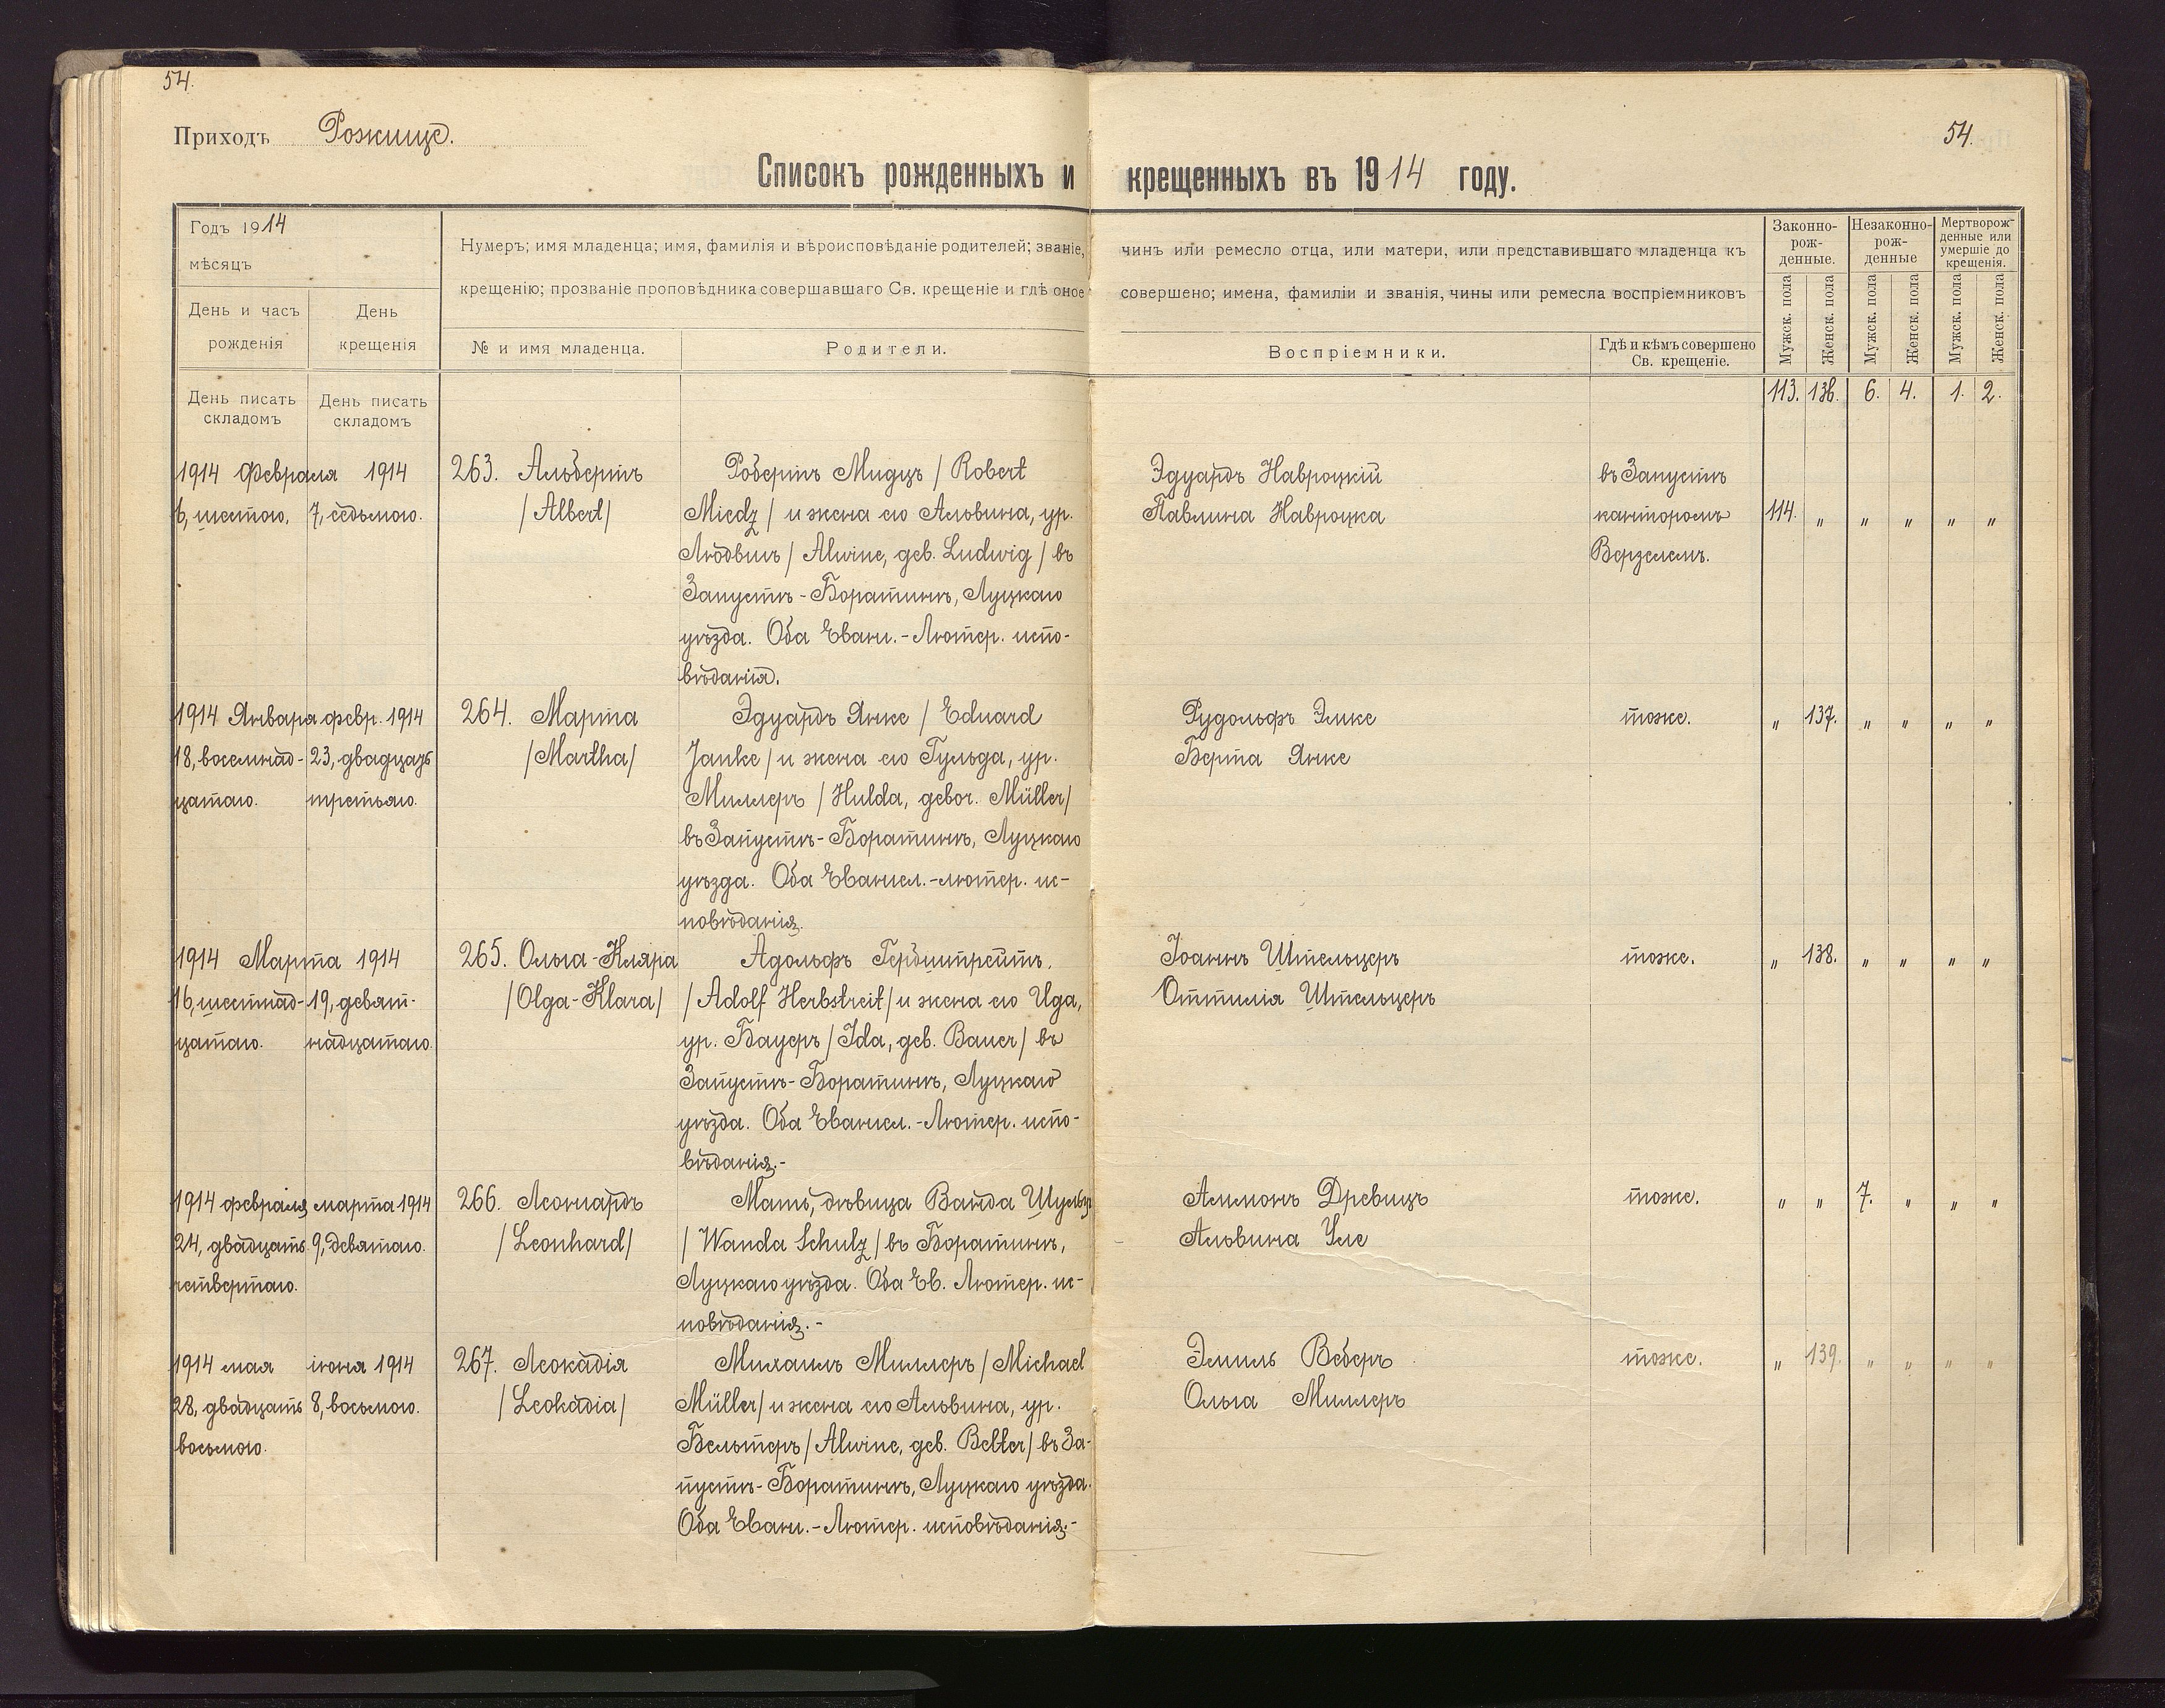 54.
54.
Приходъ Рожище.
Списокъ рожденныхъ и крещенныхъ въ 1914 году.
Годъ 1914
мѣсяцъ
День и часъ рожденія
День крещенія
Нумеръ; имя младенца; имя, фамилія и вѣроисповѣданіе родителей; званіе, чинъ или ремесло отца, или матери, или представившаго младенца къ
крещенію; прозваніе проповѣдника совершавшаго Св. крещеніе и гдѣ оное совершено; имена, фамиліи и званія, чины или ремесла воспріемниковъ
№ и имя младенца.
Родители.
Воспріемники.
Гдѣ и кѣмъ совершено
Св. крещеніе.
Законно-
рож-
денные.
Незаконно-
рож-
денные
Мертворож-
денные или
умершіе до
крещенія.
Мужск. пола
Женск. пола
Мужск. пола
Женск. пола
Мужск. пола
Женск. пола
День писать
складомъ
День писать
складомъ
113. 136. 6. 4. 1. 2.
1914 Февраля 1914
6, шестого. 7, седьмого.
263. Альбертъ
/Albert/
Робертъ Мидцъ / Robert
Miedz / и жена его Альвина, ур.
Людвигъ / Alwine, geb. Ludwig / въ
Запустѣ-Боратинѣ, Луцкаго
уѣзда. Оба Еванг.-Лютер. испо-
вѣданія.
Эдуардъ Навроцкій
Павлина Навроцка
въ Запустѣ
канторомъ
Верзелемъ.
114. " " " " "
1914 Января февр. 1914
18, восемнад- 23, двадцать
цатаго. третьяго.
264. Марта
/Martha/
Эдуардъ Янке / Eduard
Janke / и жена его Гульда, ур.
Миллеръ / Hulda, gebor. Müller/
въ Запустѣ-Боратинѣ, Луцкаго
уѣзда. Оба Евангел.-лютер. ис-
повѣданія.
Рудольфъ Элке
Берта Янке
тоже.
" 137. " " " "
1914 Марта 1914
16, шестнад- 19, девят-
цатаго. надцатаго.
265. Ольга-Кляра
/Olga-Klara/
Адольфъ Гербштрейтъ,
/Adolf Herbstreit/ и жена его Ида,
ур. Бауеръ / Ida, geb. Bauer / въ
Запустѣ-Боратинѣ, Луцкаго
уѣзда. Оба Евангел.-Лютер. испо-
вѣданія.-
Іоаннъ Штельцеръ
Оттилія Штельцеръ
тоже.
" 138. " " " "
1914 февраля марта 1914
24, двадцать 9, девятаго.
четвертаго.
266. Леонгардъ
/Leonhard/
Мать, дѣвица Ванда Шульц
/ Wanda Schulz / въ Боратинѣ,
Луцкаго уѣзда. Оба Ев. Лютер. ис-
повѣданія.-
Древицъ
Альвина
тоже.
" " 7. " " "
1914 мая іюня 1914
28, двадцать 8, восьмого.
восьмого.
267. Леокадія
/Leokadia/
Михаилъ Миллеръ / Michael
Müller/ и жена его Альвина, ур.
Бельтеръ / Alwine, geb. Belter / въ За-
пустѣ-Боратинѣ, Луцкаго уѣзда.
Оба Еванг.-Лютер. исповѣданія.-
Эмиль Веберъ
Ольга Миллеръ
тоже.
" 139. " " " "